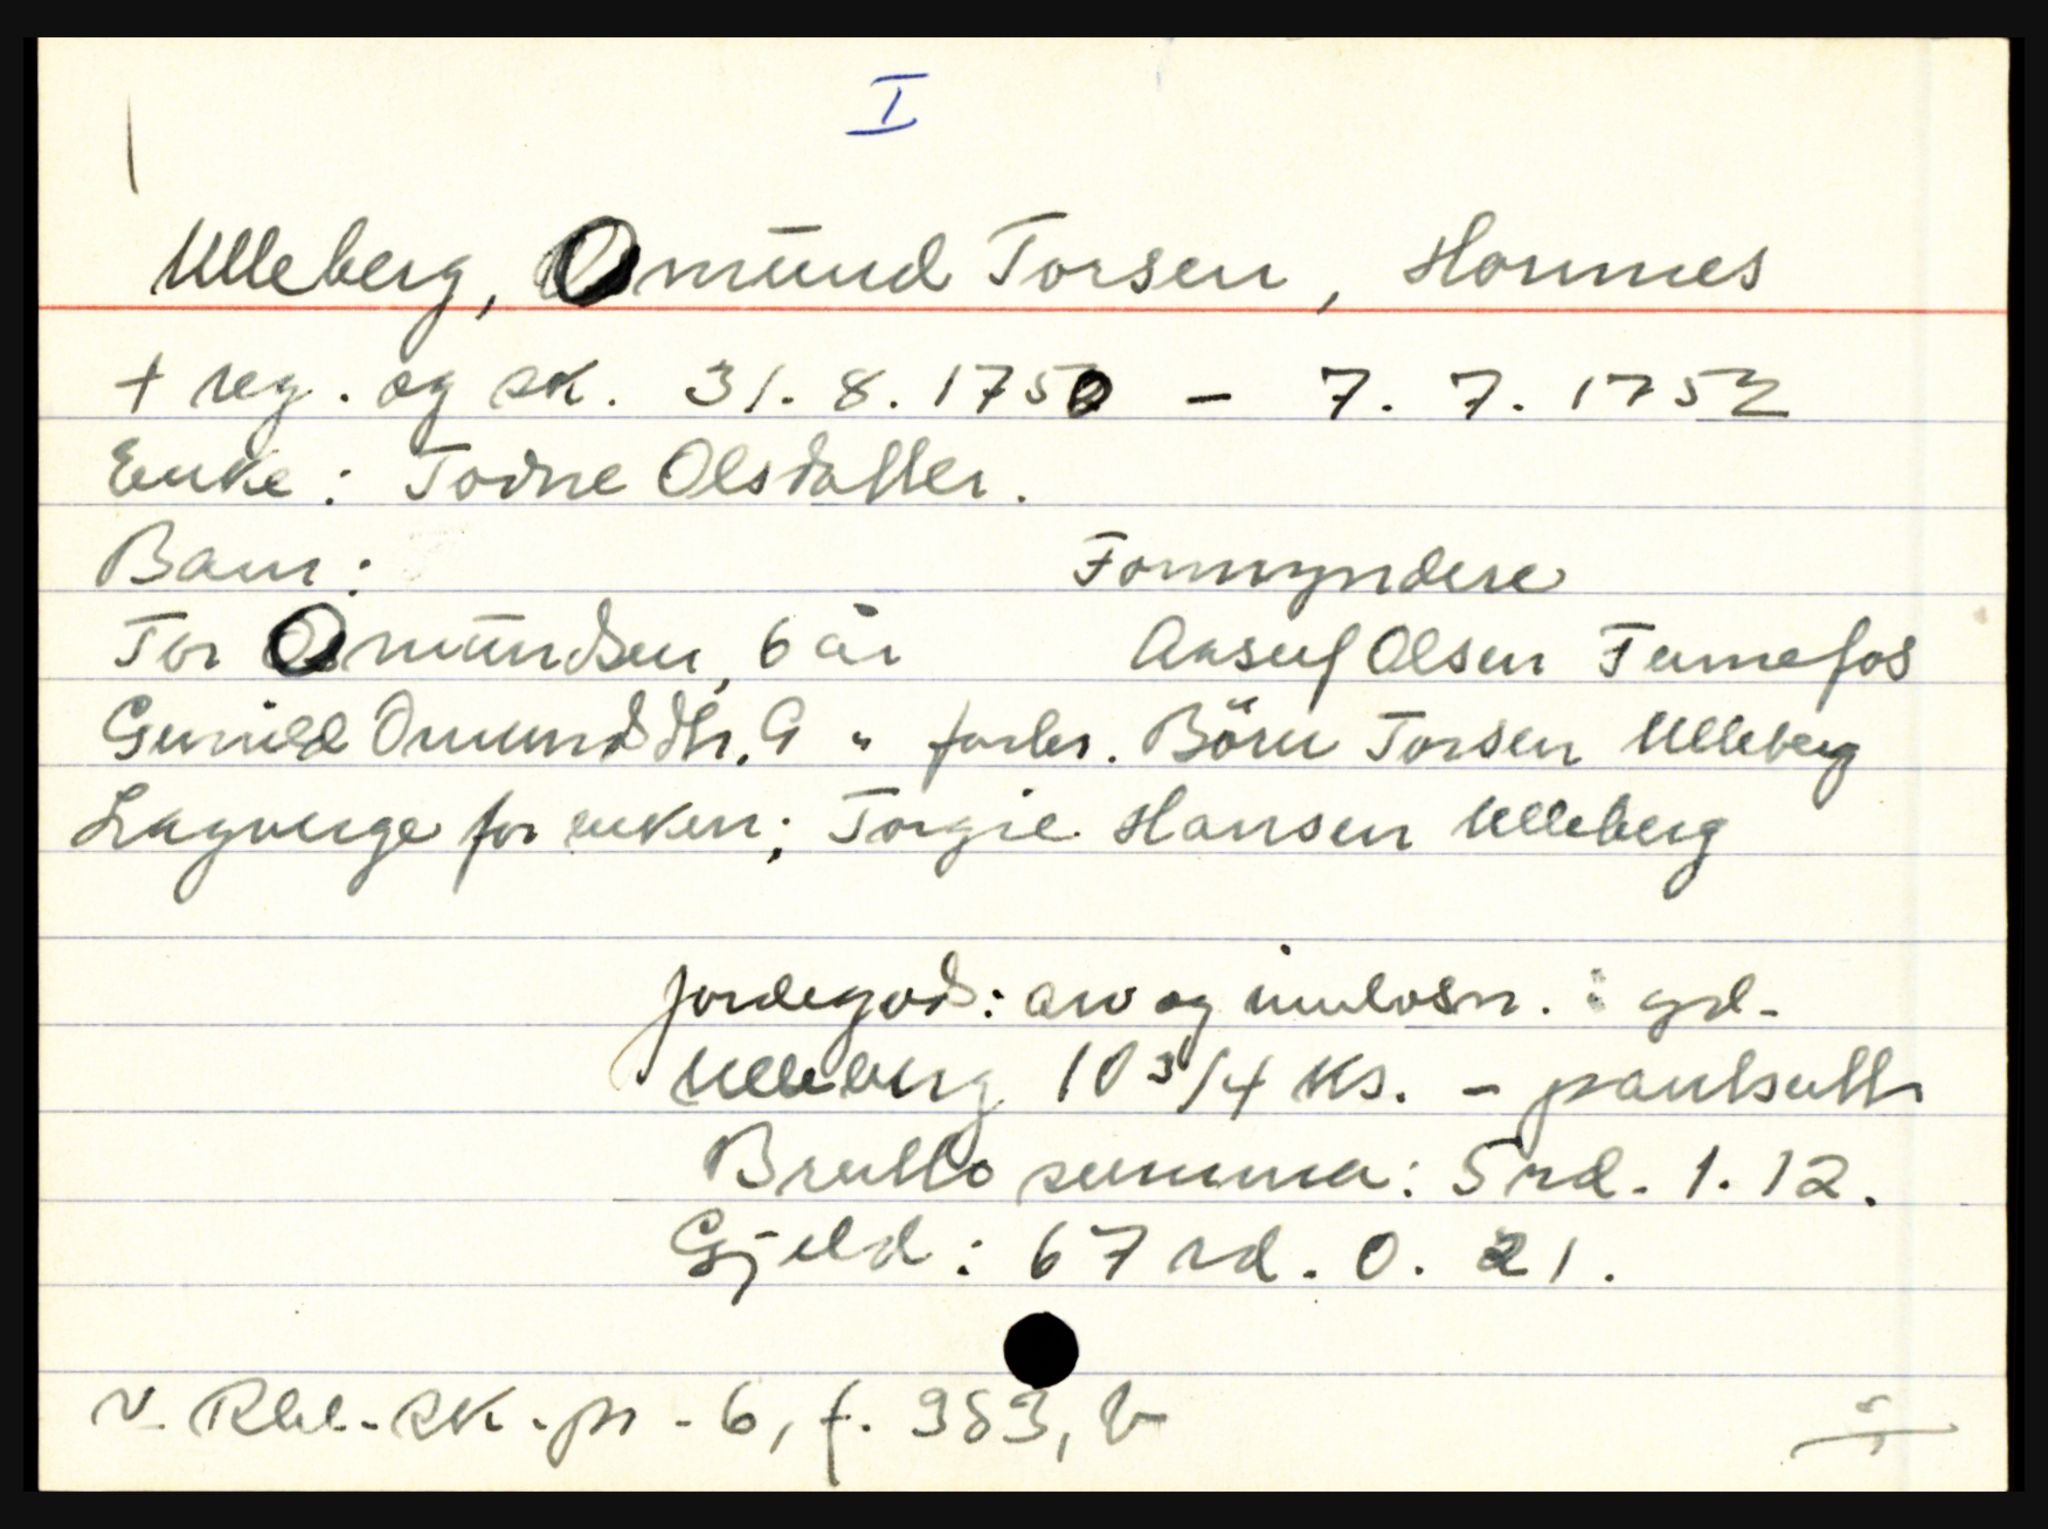 I
Ulleberg, Omund Torsen, Hornnes
+ reg. og sk. 31.8.1750 - 7.7.1752
Enke: Torine Olsdatter.
Barn: Formyndere
Tor Omundsen, 6 år Aasulf Olsen Fennefos
Gunild Omundsdtr. 9 " farbr. Børn Torsen Ulleberg
Lagverge for enken; Torgie Hansen Ulleberg
Jordegods: arv og innløsn. i grd.
Ulleberg 10 3/4 ks. - pantsatt
Brutto summa: 5 rd. 1. 12.
Gjeld: 67 rd. 0. 21.
v. Rbl. sk. pr - 6, f. 953, b